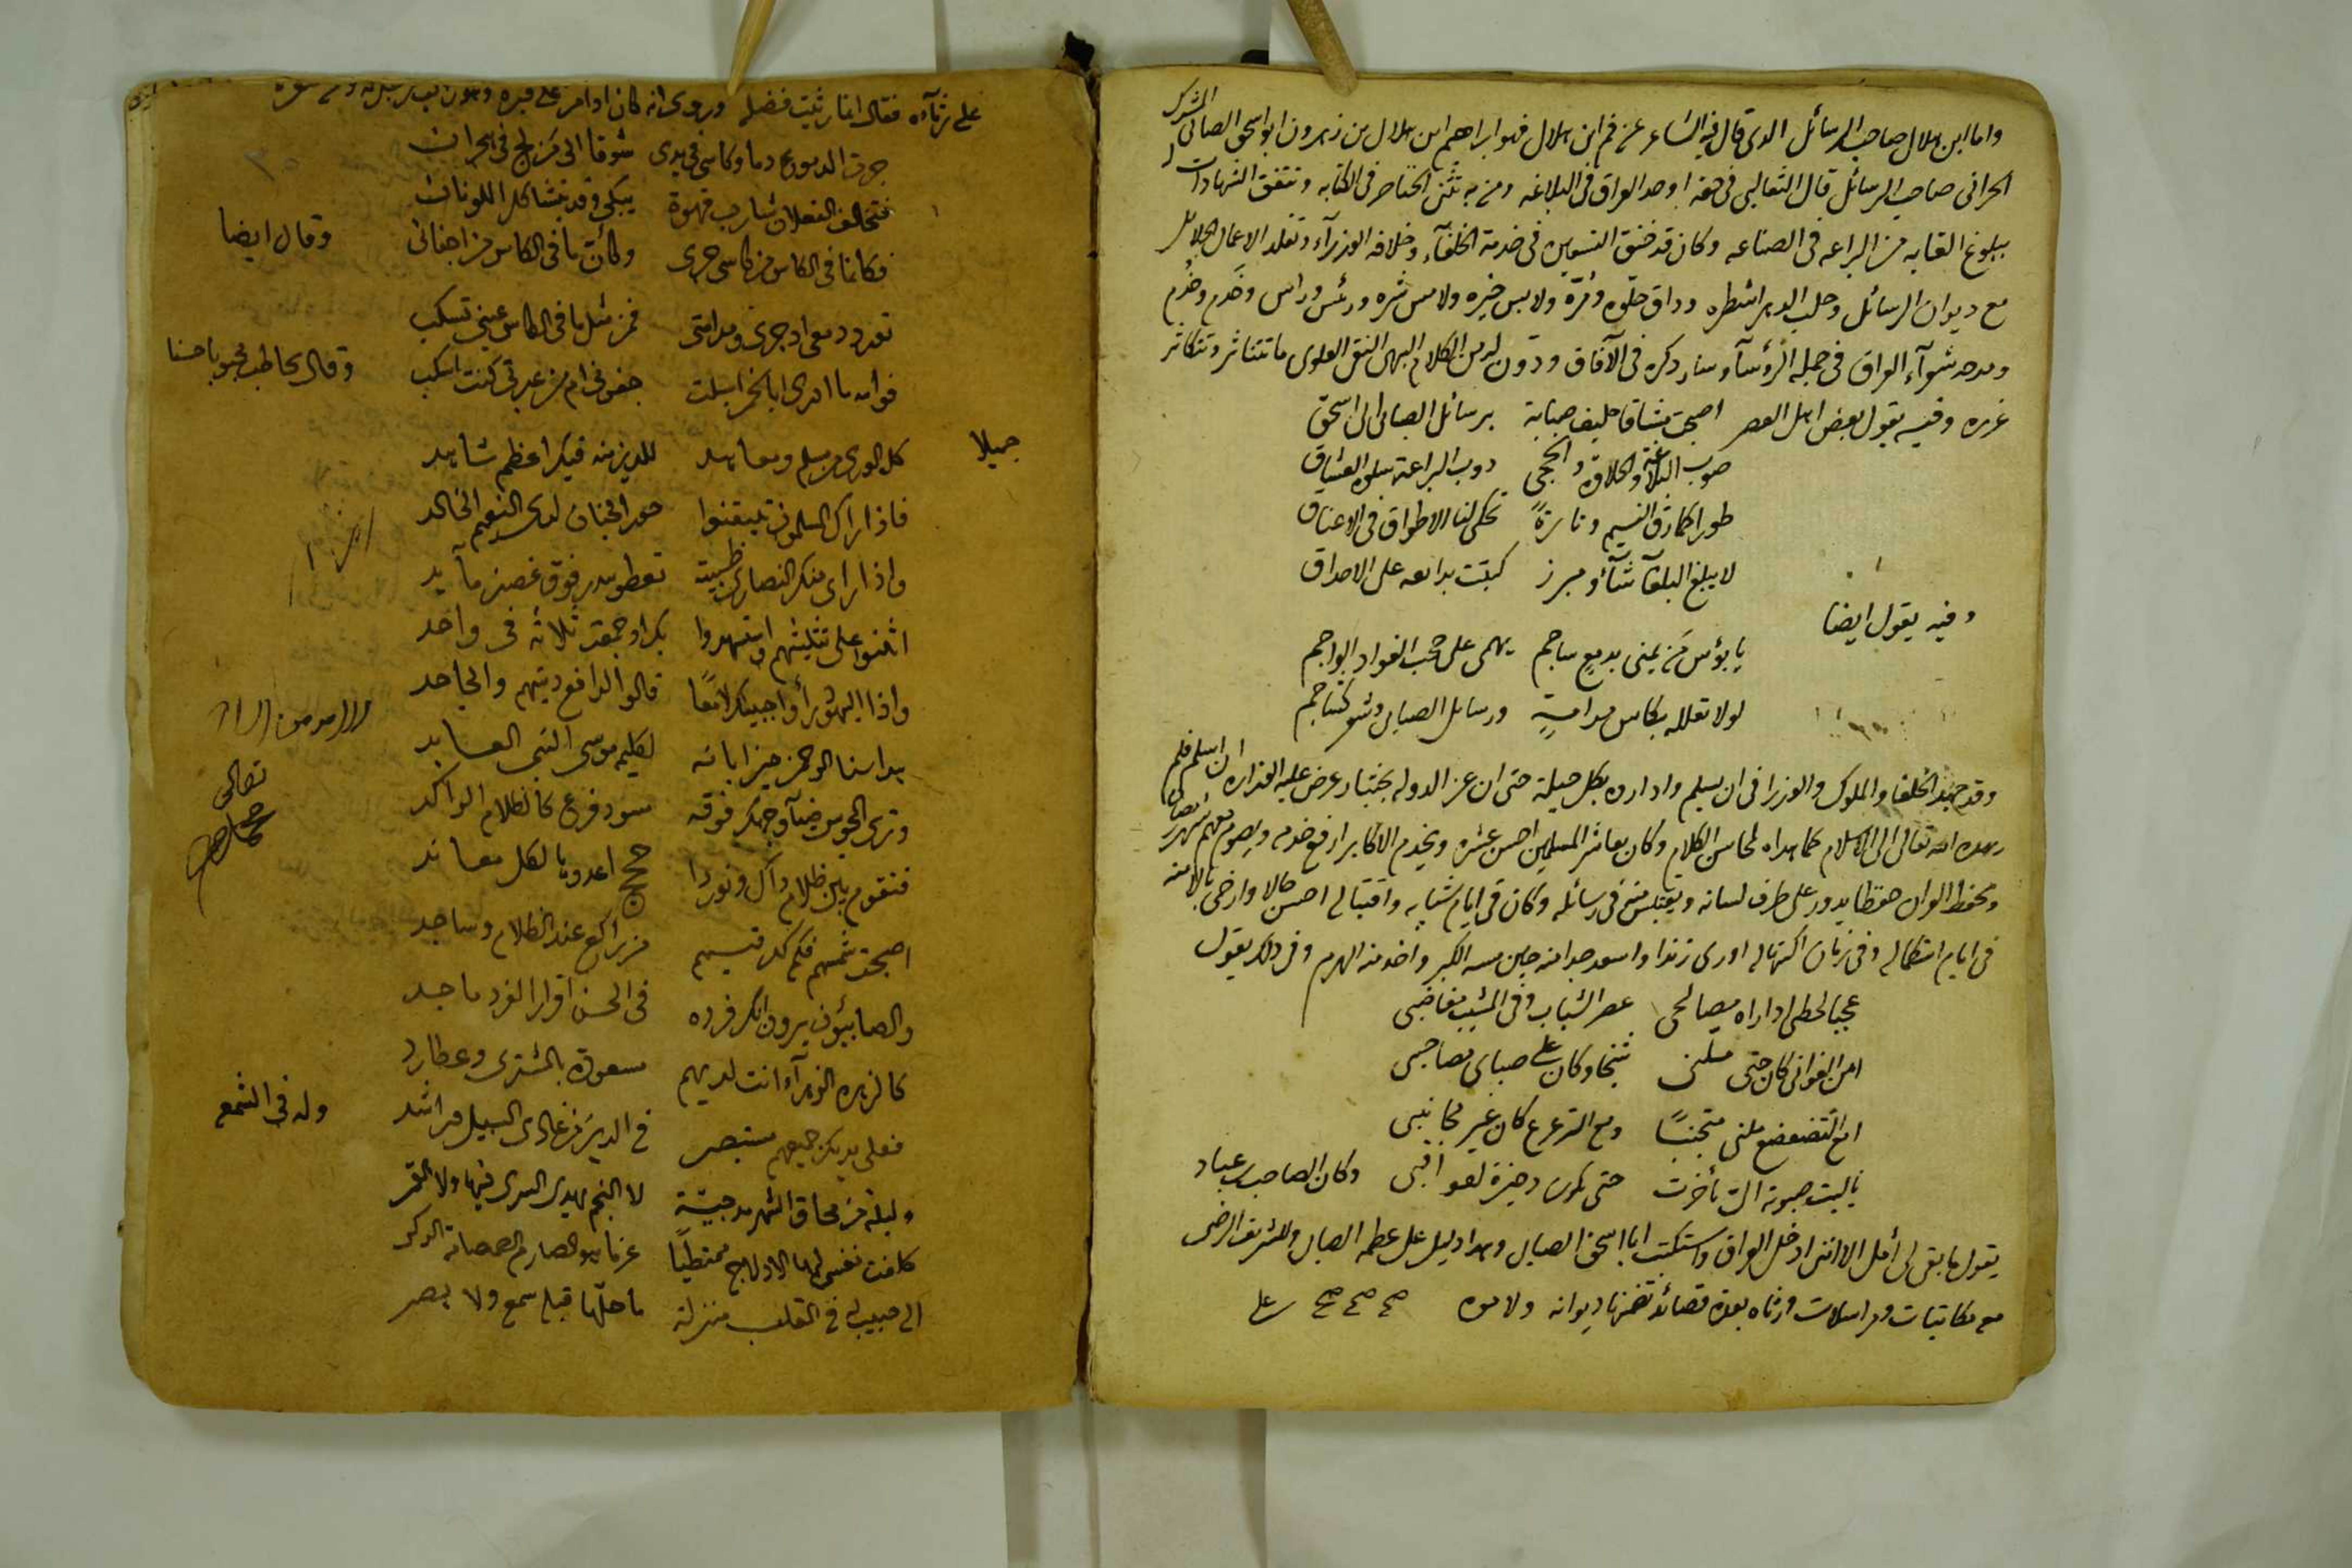 واما ابن هلال صاحب الرسائل الذى قال فيه الشاعر عن فم ابن هلال فهو ابراهيم ابن هلال بن زهرون ابو اسحق الصابى المشرك
الحرانى صاحب الرسائل قال الثعالبى فى حقه اوحد العراق فى البلاغه ومن به تثنى الخناصر فى الكتابه وتتفق الشهادات
ببلوغ الغايه من البراعه فى الصناعه وكان قد خنق التسعين فى خدمة الخلفآء وخلافه الوزرآء وتقلد الاعمال الجلائل
مع ديوان الرسائل وحلب الدهر اشطره وذاق حلوه ومرّه ولابس خيره ولامس شره ورئس وراس وخَدم وخُدم
ومدحه شعرآء العراق فى جمله الرؤسآ وسار ذكره فى الآفاق ودوّن له من الكلام البهى النقى العلوى ما تتناثر وتتكاثر
غرره وفيه يقول بعض اهل العصر اصبحت مشتاقا حليف صبابة برسائل الصابى ابى اسحق
صوب البلاغة والحلاوة والحجى ذوب البراعة سلوة العشاق
طورا كما رق النسيم وتارةً تحكى لنا الاطواق فى الاعناق
لا يبلغ البلغآ شأو مبرز كتبت بدائعه على الاحداق
وفيه يقول ايضا
يا بؤس مَن يمنى بدمع ساجم يهمى على حجب الفواد الواجم
لولا تعلله بكاس مدامةٍ ورسائل الصابى وشعر كشاجم
وقد جهد الخلفا والملوك والوزرا فى ان يسلم واداروه بكل حيلة حتى ان عز الدوله بختيار عرض عليه الوزاره ان اسلم فلم
يهده الله تعالى الى الاسلام كما هداه لمحاسن الكلام وكان يعاشر المسلمين احسن عشره ويخدم الاكابر ارفع خدمه ويصوم معهم شهر رمضان
ويحفظ القران حفظا يدور على طرف لسانه ويقتبس منه فى رسائله وكان فى ايام شبابه واقتباله احسن حالا وارخى بالا منه
فى ايام اكتماله وفى زمان اكتهاله اورى زندا واسعد جدا منه حين مسه الكبر واخذ منه الهرم وفى ذلك يقول
عجبا لحظى اذ اراه مصالحى عصر الشباب وفى المشيب مغاضبى
امن الغوانى كان حتى ملنى شيخا وكان على صباى مصاحبى
امع التضعضع ملنى متجنبًا ومع الترعرع كان غير مجانبى
يا ليت صبوته الىّ تأخرت حتى تكون ذخيرة لعواقبى وكان الصاحب بن عباد
يقول ما بقى لى أمل الا ان ادخل العراق واستكتب ابا اسحق الصابى وهذا دليل على عظمه الصابى وللشريف الرضى
مع مكاتبات ومراسلات ورثاه بعدة قصائد تضمنها ديوانه ولاموه صح صح صح على
على رثآءه فقال انما رثيت فضله وروى انه كان اذا مر على قبره
جرت الدموع دما وكاسى فى يدى شوقا الى مَن لج فى هجرانى
فتخالف الفعلان شارب قهوة يبكى وقد يتشاكل اللونان
فكانما فى الكاس من كاسى جرى وكأنّ ما فى الكاس من اجفانى وقال ايضا
تورد دمعى اذ جرى ومدامتى فمن مثل ما فى الكاس عينى تسكب
فوالله ما ادرى ابالخمر اسبلت جفونى ام من عبرتى كنت اشرب وقال يخاطب محبوبا حسنا
جميلا
كل الورى من مسلم ومعاهد للدين منه فيك اعظم شاهد
فاذا راك المسلمون تيقنوا حور الجنان لدى النعيم الخالد
واذا راى منك النصارى ظبية تعطو ببدر فوق غصن مآيد
اثنوا على تثليثهم واستشهدوا بك اذ جمعت ثلاثة فى واحد
واذا اليهود رأوا جبينك لامعًا قالوا لدافع دينهم والجاحد
هذا سنا الرحمن حين ابانه لكليمه موسى النبى العابد
وترى المجوس ضيآ وجهك فوقه مسود فرع كالظلام الراكد
فتقوم بين ظلام ذاك ونور ذا حجج اعدوها لكل معاند
اصبحت شمسهم فكم لك فيهم من راكع عند الظلام وساجد
والصابئون يرون انك فرده فى الحسن اقرارا لفرد ماجد
كالزهره الزهرآء انت لديهم مسعودة بالمشترى وعطارد
فعلى يديك جميعهم مستبصر فى الدين من غاوى السبيل وراشد وله فى الشمع
وليلة من محاق الشهر مدجيّة لا النجم يهدى السرى فيها ولا القمر
كلفت نفسى بها الادلاج ممتطيًا عزما هو الصارم الصمصامة الذكر
الى حبيب له فى القلب منزلة ما حلّها قبله سمع ولا بصر